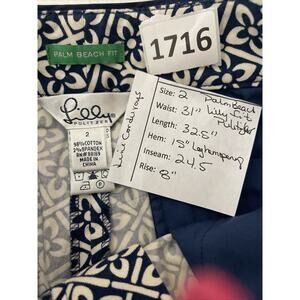 PALM BEACH FIT
1716
Lilly
PULITZER
2
98% COTTON
2% SPANDEX
RN# 89189
MADE IN
CHINA
Size: 2 Palm Beach
Waist: 31" Lilly Fit
Length: 32.5" Pulitzer
Hem: 15" Leg hem opening
Inseam: 24.5
Rise: 8"